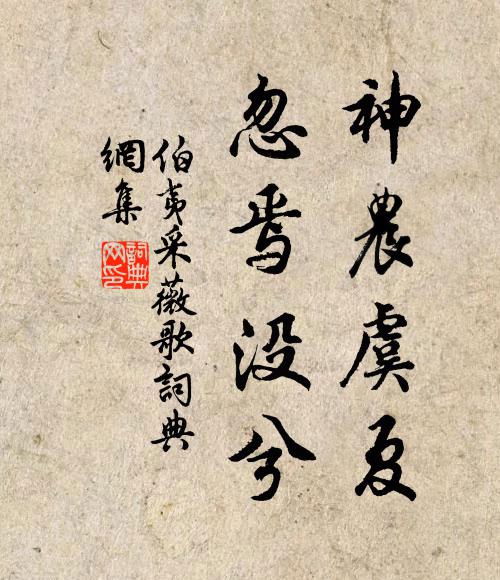 神農虞夏
忽焉没兮
伯夷采薇歌詞典
網集
詞典網印